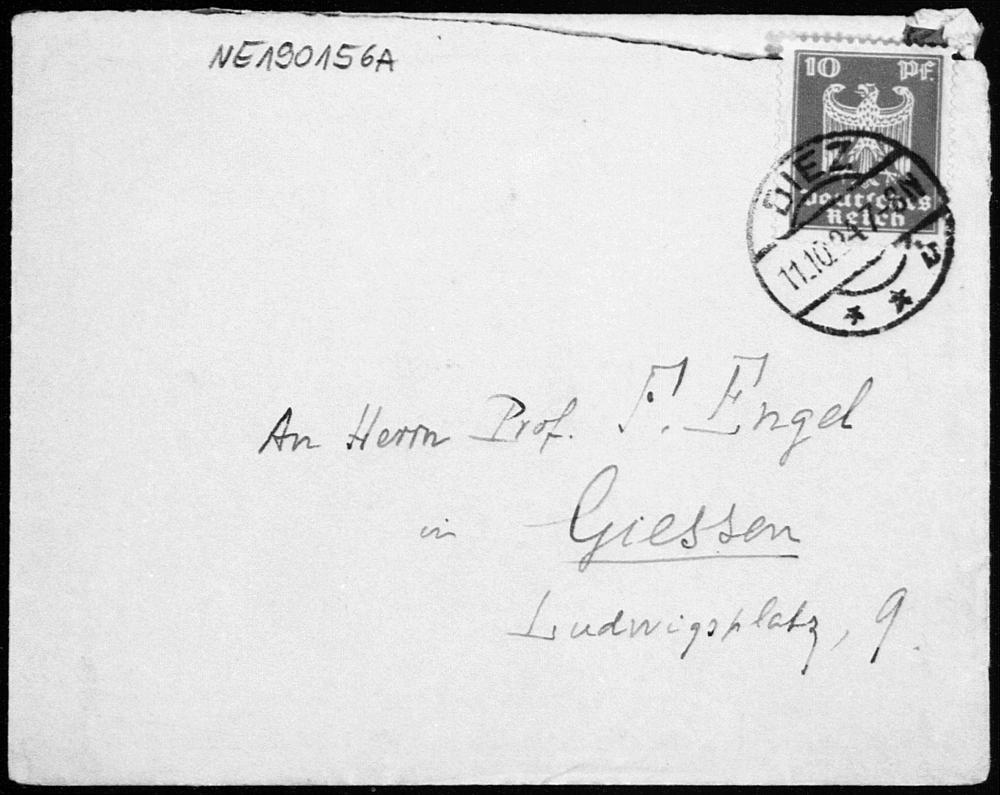 NE190156A
10 Pf.
Deutsches
Reich
DIEZ
11.10.24.7-8N
An Herrn Prof. F. Engel
in Giessen
Ludwigsplatz, 9.